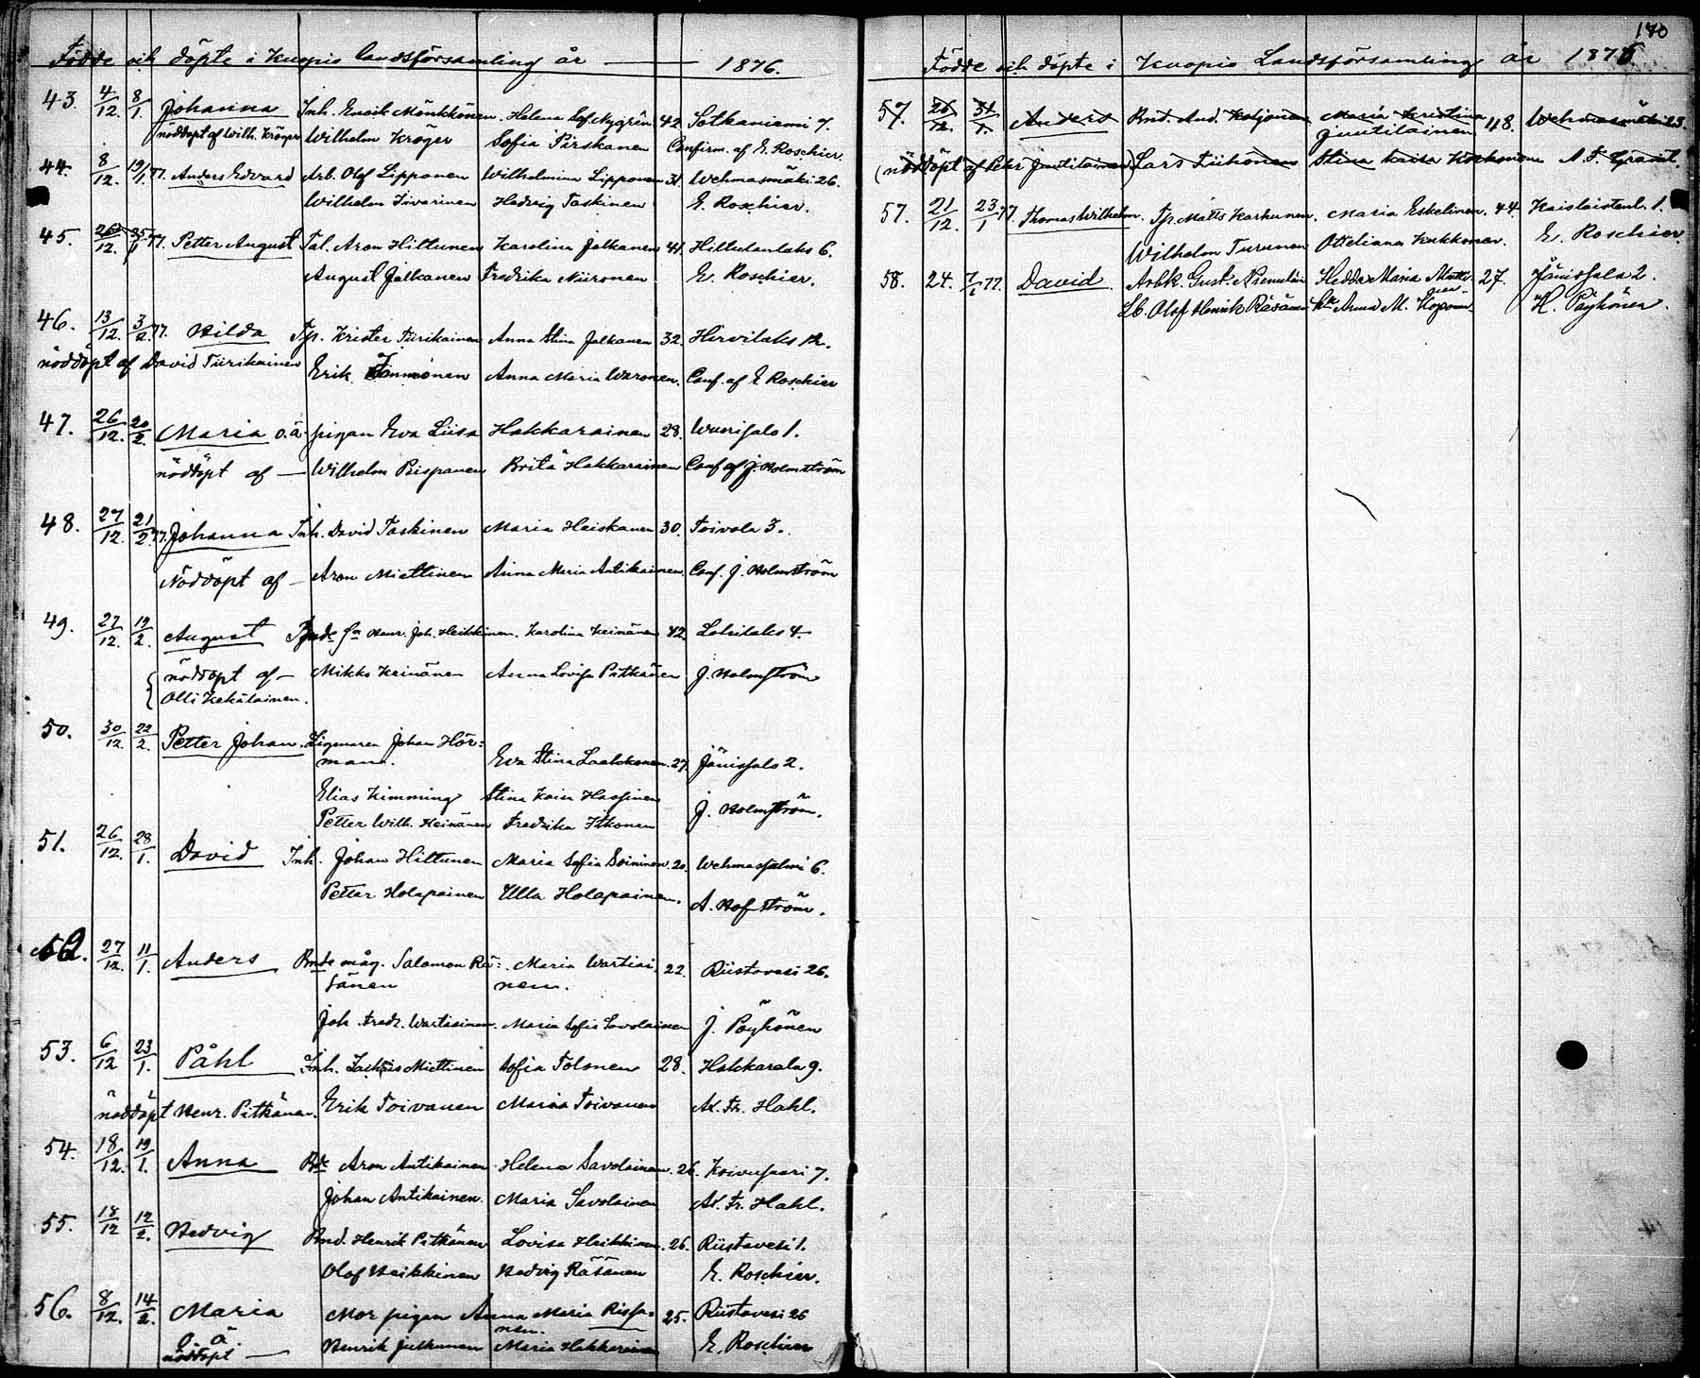 Födde och döpte i Kuopio landsförsamling år — 1876.
43. 4/12. 8/1. Johanna Inh. Enrik Mönkkönen. Helena Sof. Nygrén 42. Sotkaniemi 7.
nöddöpt af Wilh. Kröger Wilhelm Kröger Sofia Pirskanen Confirm. af E. Roschier.
44. 8/12. 19/1. 77. Anders Edvard Arb. Olof Lipponen Wilhelmina Lipponen 31. Wehmasmäki 26.
Wilhelm Iivarinen Hedvig Taskinen E. Roschier.
45. 26/12. 25/1 77. Petter August Tal. Aron Hiltunen Karolina Jalkanen 41. Hiltulanlaks 6.
August Jalkanen Fredrika Niironen E. Roschier.
46. 13/12. 3/2. 77. Hilda Tp. Krister Tiirikainen Anna Stina Jalkanen 32. Hirvilaks 12.
nöddöpt af David Tiirikainen Erik Immonen Anna Maria Waronen. Conf. af E Roschier
47. 26/12. 20/2. Maria o.ä. pigan Eva Liisa Hakkarainen 28. Wuorisalo 1.
nöddöpt af — Wilhelm Rispanen Brita Hakkarainen Conf af J. Holmström
48. 27/12. 21/2. 77. Johanna Inh. David Taskinen Maria Heiskanen 30. Toivola 3.
Nöddöpt af — Aron Miettinen Anna Maria Antikainen. Conf. J. Holmström
49. 27/12. 19/2. August Bnde sn Henr. Joh. Heikkinen. Karolina Keinänen 42. Lohilaks 4.
nöddöpt af — Mikko Keinänen Anna Lovisa Pitkänen J. Holmström
Olli Kekälainen.
50. 30/12. 22/2. Petter Johan. Ligenaren Johan Hör=
mann. Eva Stina Laakkonen. 27. Jänissalo 2.
Elias Kimming Stina Kaisa Hassinen J. Holmström.
Petter Wilh. Heinänen Fredrika Itkonen
51. 26/12. 28/1. David Inh. Johan Hiltunen Maria Sofia Soininen. 20. Wehmassalmi 6.
Petter Holapainen Ulla Holapainen. A. Hofström.
52. 27/12. 11/1. Anders Bnde måg. Salamon Rä= Maria Wartiai= 22. Riistavesi 26.
sänen nen.
Joh. Fredr. Wartiainen. Maria Sofia Savolainen J. Pöyhönen
53. 6/12 23/1. Påhl Inh. Zachris Miettinen Sofia Tolonen 28. Hakkarala 9.
nöddöpt Henr. Pitkänen. Erik Toivanen Maria Toivanen Ax. Fr. Hahl.
54. 18/12. 19/1. Anna Bde Aron Antikainen Helena Savolainen. 26. Koivusaari 7.
Johan Antikainen. Maria Savolainen Ax. Fr. Hahl.
55. 18/12 12/2. Hedvig Bnd. Henrik Pitkänen Lovisa Heikkinen. 26. Riistavesi 1.
Olof Heikkinen Hedvig Räsänen E. Roschier.
56. 8/12. 14/2. Maria Mor pigan Anna Maria Rissa= 25. Riistavesi 26
o. ä. nen.
nöddöpt — Henrik Julkunen Maria Hakkarainen E. Roschier
180
Födde och döpte i Kuopio Landsförsamling år 1876
57. 26/12. 31/1. Anders Bnd. And. Kotjonen Maria Kristina 48. Wehmasmäki 23.
Juutilainen
(nöddöpt af Petr Juutilainen) Lars Tiihonen Stina Kaisa A. F. Granit.
57. 21/12. 23/1 77. Thomas Wilhelm. Tp. Matts Karhunen. Maria Eskelinen. 44. Kaislaistenl. 1.
Wilhelm Turunen Otteliana Kukkonen. E. Roschier
58. 24. 7/1 77. David Arbk. Gust. Niemeläin Hedda Maria 27. Jänissalo 2.
Lb. Olof Henrik Räsänen Anna M. H. Pöyhönen.